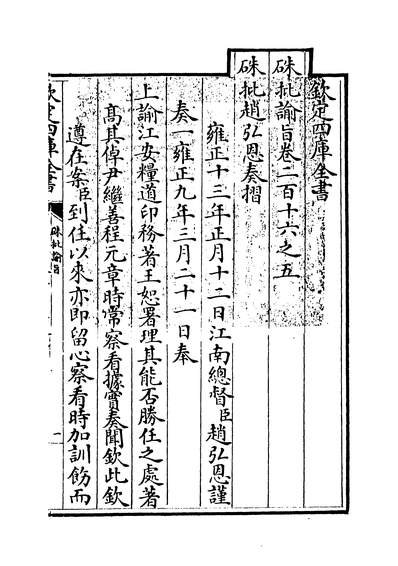 欽定四庫全書
硃批諭旨卷二百十六之五
硃批趙弘恩奏摺
雍正十三年正月十二日江南總督臣趙弘恩謹
奏一雍正九年三月二十一日奉
上諭江安糧道印務著王恕署理其能否勝任之處著
高其倬尹繼善程元章時常察看據實奏聞欽此欽
遵在案臣到任以來亦即留心察看時加訓飭而
欽定四庫全書
硃批諭旨
一